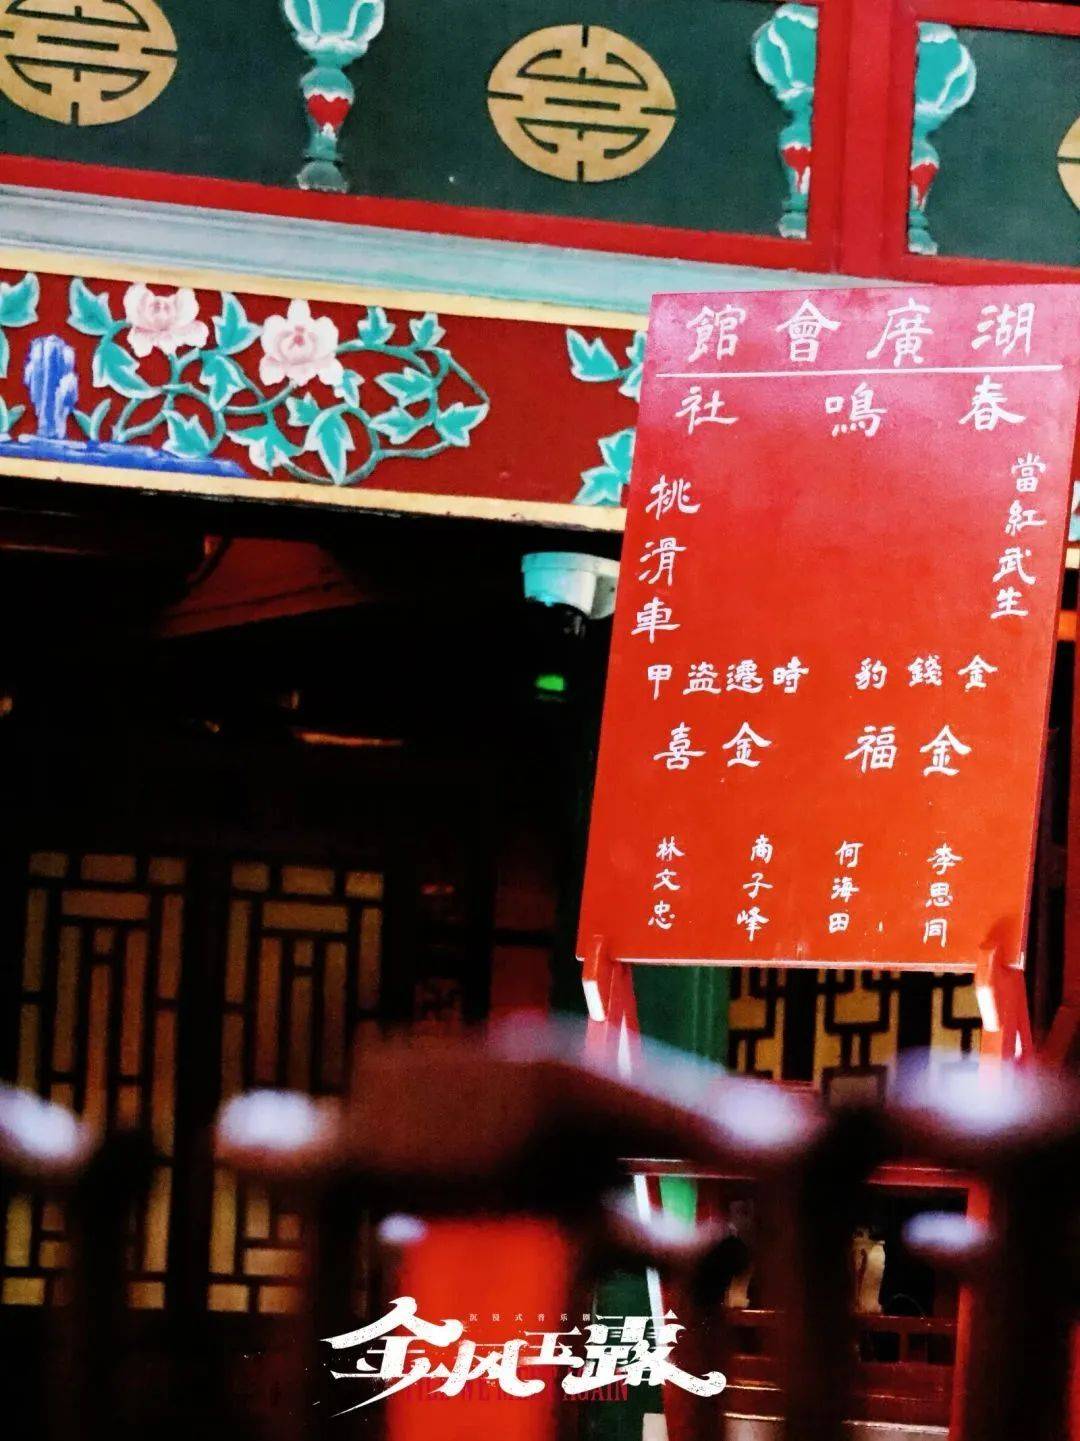 湖廣會館
春鳴社
當紅武生
桃滑車
金錢豹 時遷盜甲
金福 金喜
李思同
何海田
商子峰
林文忠
沉浸式音乐剧
金风玉露
TILL WE MEET AGAIN